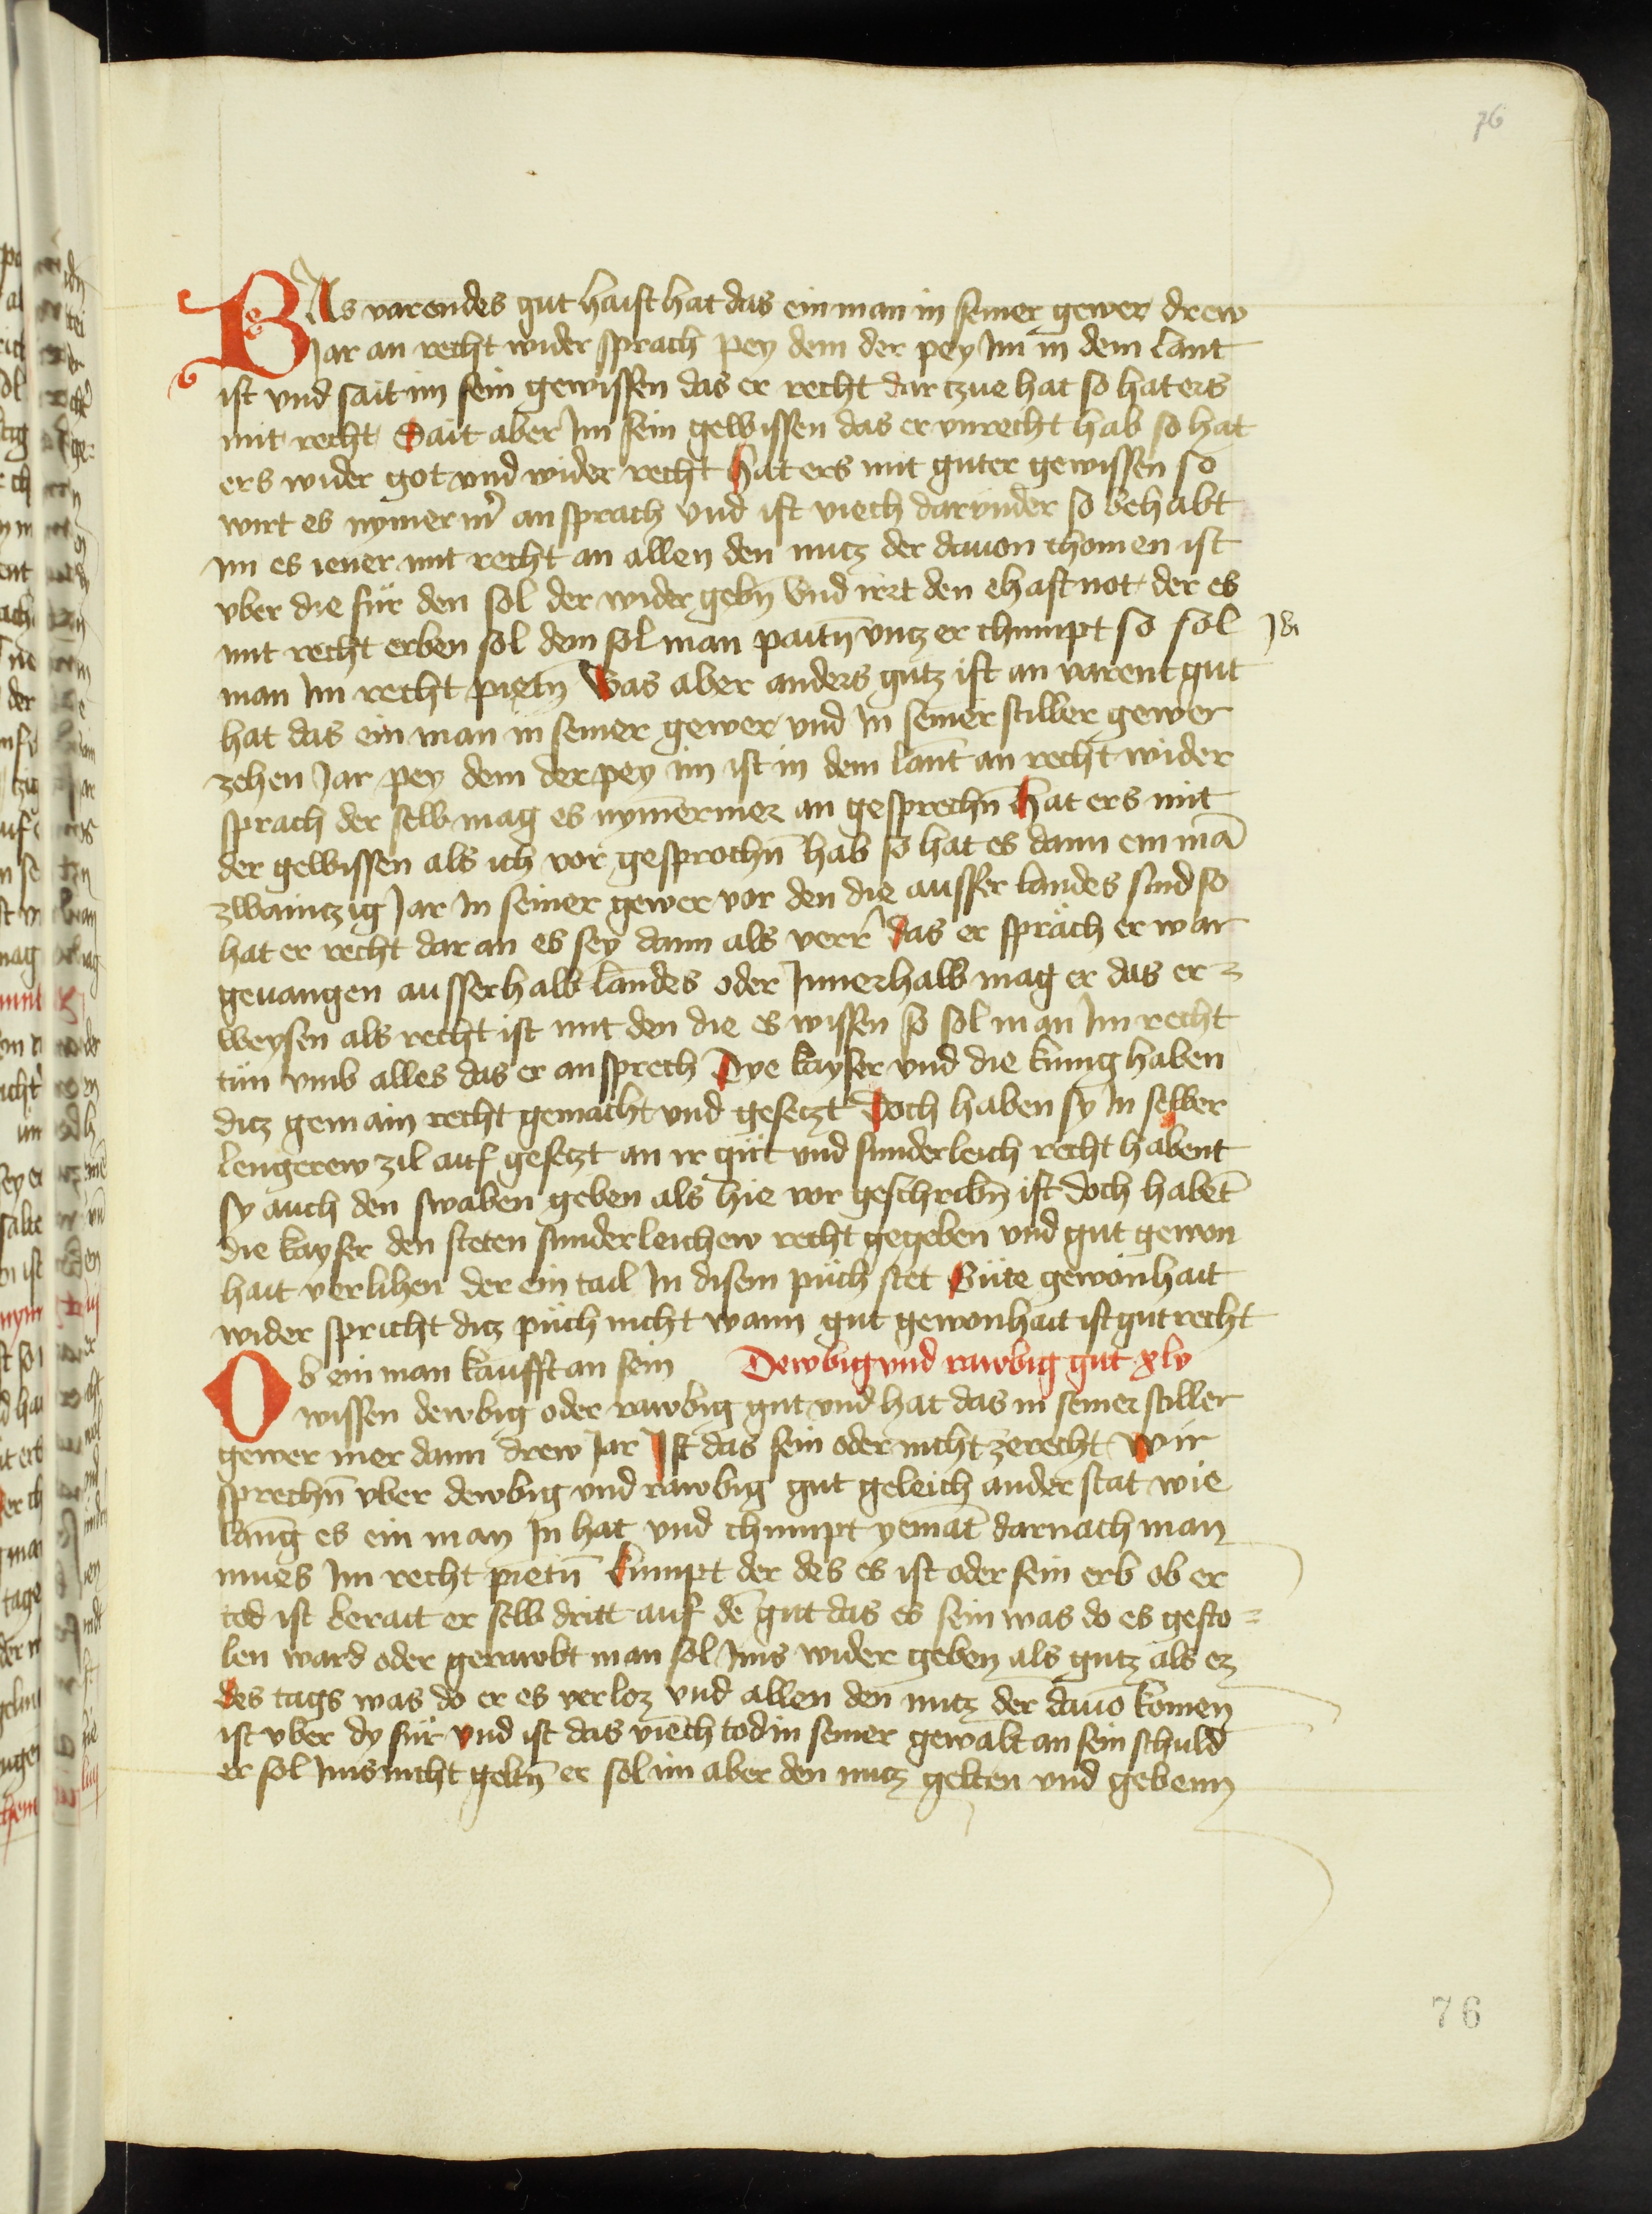 76
WAs varendes gut haist hat das ein man in seiner gewer drew
Jar an recht wider sprach pey dem der pey Im in dem lant
ist vnd sait im sein gewissen das er recht dar czue hat so hat ers
mit recht Sait aber Im sein gewissen das er vnrecht hab so hat
ers wider got vnd wider recht hat ers mit guter gewissen so
wirt es nymer mer an sprach vnd ist viech darvnder so behabt
im es iener mit recht an allen den nutz der dauon chomen ist
vber die fůr den sol der wider gebn̄ Vnd irrt den ehaft not der es
mit recht erben sol dem sol man paitn̄ vntz er chumpt so sol
man Im recht pietn̄ Was aber anders gutz ist an varent gut
hat das ein man in seiner gewer vnd In seiner stiller gewer
zehen Jar pey dem der pey im ist in dem lant an recht wider
sprach der selb mag es nymermer an gesprechn̄ hat ers mit
der gewissen als ich vor gesprochn̄ hab so hat es dann ein mā
zwaintzig Jar In seiner gewer vor den die ausser landes sind so
hat er recht dar an es sey dann als verr das er spräch er war
geuangen ausserhalb landes oder Innerhalb mag er das er=
weysen als recht ist mit den die es wissen so sol man Im recht
tůn vmb alles das er an sprech Dye kayser vnd die kunig haben
ditz gemain recht gemacht vnd gesetzt Doch haben sy In selber
lengerew zil auf gesetzt an ir gůt vnd sunderleich recht habent
sy auch den swaben geben als hie vor geschribn̄ ist doch habēt
die kayser den steten sunderleichew recht gegeben vnd gut gewon
hait verlihen der ein tail In disem půch stet Gůte gewonhait
wider spricht ditz půch nicht wann gut gewonhait ist gut recht
Ob ein man kaufft an sein Dewbig vnd rawbig gut xlv
wissen dewbig oder rawbig gut vnd hat das in seiner stiller
gewer mer dann drew Jar Ist das sein oder nicht ze recht Wir
sprechn̄ vber dewbig vnd rawbig gut geleich ander stat wie
lang es ein man In hat vnd chumpt yemāt darnach man
mues Im recht pietn̄ kumpt der des es ist oder sein erb ob er
tod ist berait er selb dritt auf dē gut das es sein was do es gesto=
len ward oder gerawbt man sol Ims wider geben als gutz als ez
des tags was do er es verloz vnd allen den nutz der dauō komen
ist vber dy fůr vnd ist das viech tod in seiner gewalt an sein schuld
er sol Ims nicht geltn̄ er sol im aber den nutz gelten vnd gebenn
76